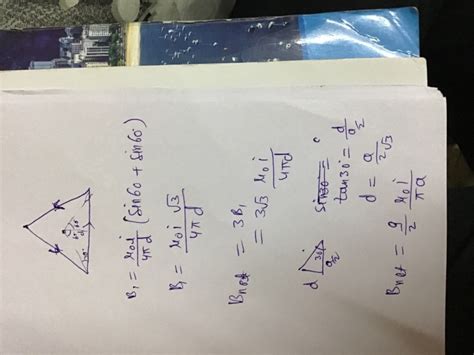 B₁ = μ₀i/4πd (sin60 + sin60)
B₁ = μ₀i √3/4πd
Bnet = 3B₁
= 3√3 μ₀i/4πd
d 30 a/2
sin30 =
tan30 = d/(a/2)
d = a/2√3
Bnet = 9/2 μ₀i/πa